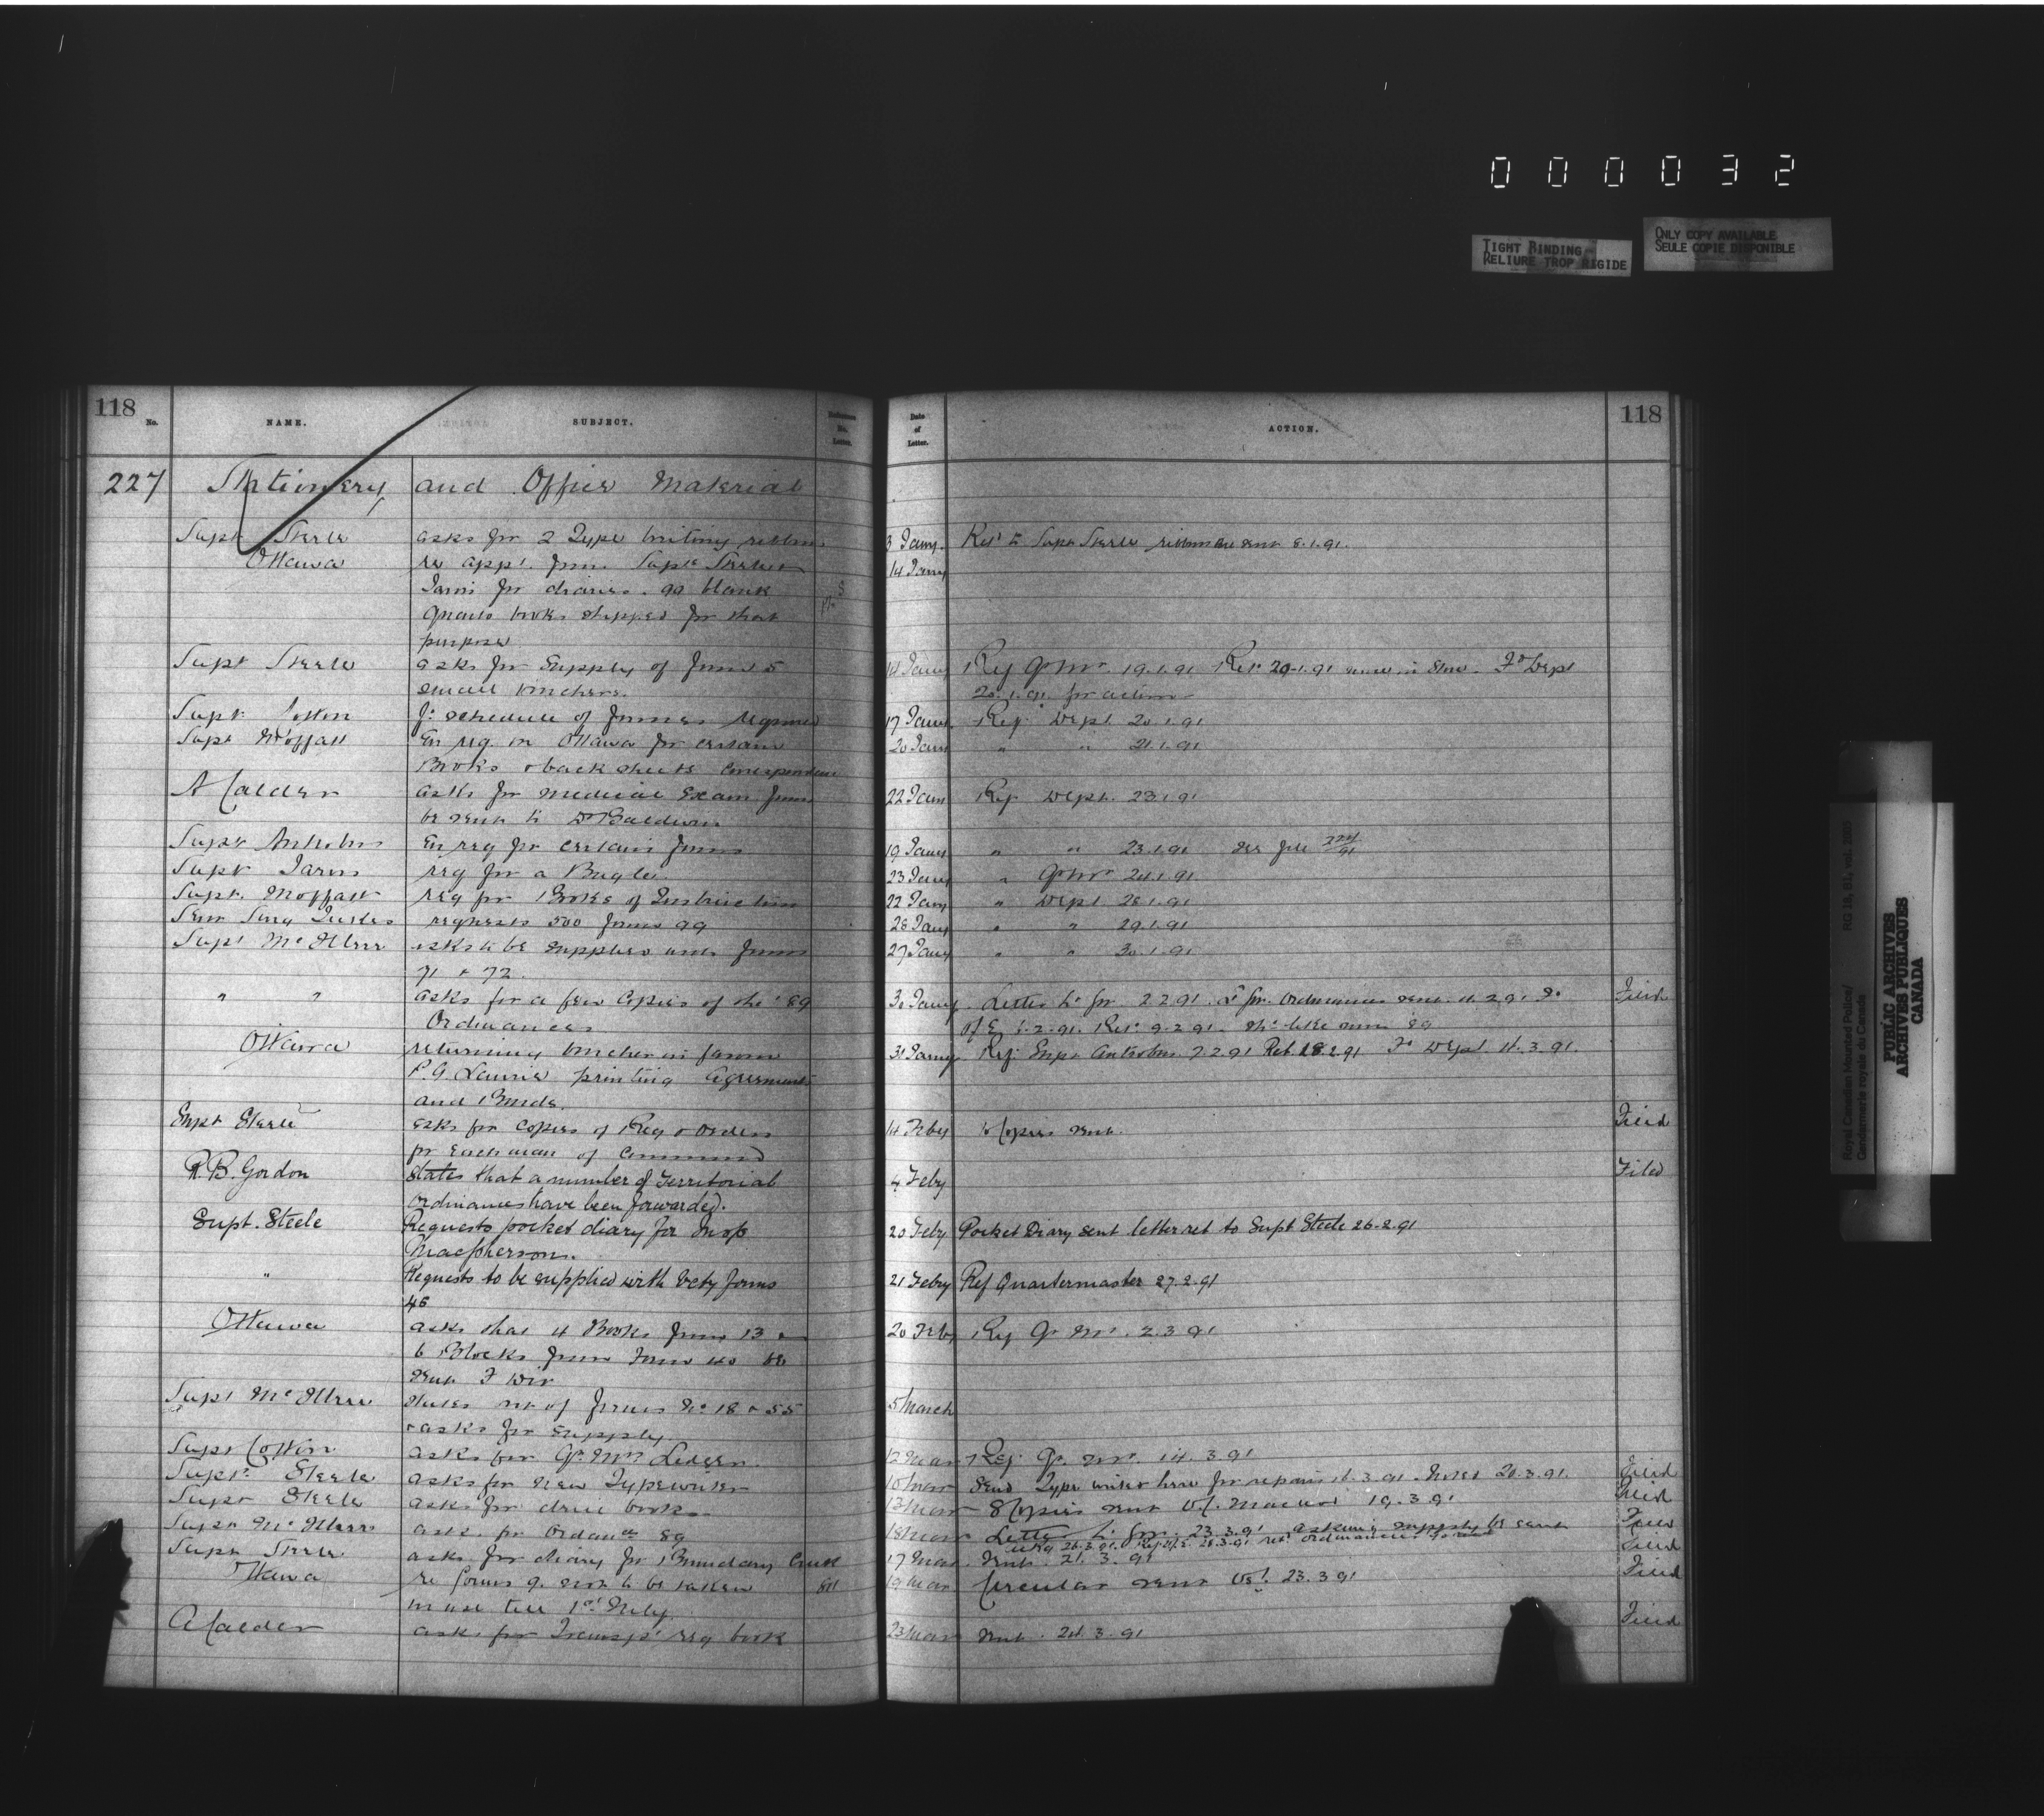 0 0 0 0 3 2
TIGHT BINDING
RELIURE TROP RIGIDE
ONLY COPY AVAILABLE
SEULE COPIE DISPONIBLE
118
No. NAME. SUBJECT. Reference No. Letter.
Date of Letter. ACTION. 118
227 Stationery and Office Material
Supt Steele asks for 2 Type writing ribbons 3 Jany. Ret'd to Supt Steele ribbons sent 8.1.91.
Ottawa re appl. from Supts Steele & 14 Jany
Jarvis for diaries. blank
books shipped for that
purpose
Supt Steele asks for supply of Forms 5 14 Jany Ref Qr Mr 19.1.91 Ret. 20.1.91 none in Store. Fd Dept
small vouchers. 20.1.91 for action
Supt Cotton schedule of Forms required 17 Jany Ref. Dept. 20.1.91
Supt Moffatt En req. on Ottawa for certain 20 Jany " " 21.1.91
Books & back sheets correspondence
A Calder asks for medical exam forms 22 Jany Ref Dept. 23.1.91
be sent to Dr Baldwin
Supt Antrobus En req for certain forms 19 Jany " " 23.1.91 See file
Supt Jarvis req for a Bugle. 23 Jany " Qr Mr 24.1.91
Supt. Moffatt req for Books of Instruction 22 Jany " Dept 28.1.91
requests 500 forms 99 28 Jany " " 29.1.91
Supt McIllree asks to be supplied with forms 27 Jany " " 30.1.91
71 & 72.
" " asks for a few copies of the '89 30 Jany Filed
Ordinances
Ottawa returning vouchers in favour 31 Jany Ref. Supt Antrobus 7.2.91 Ret. 18.2.91 Fd Dept. 11.3.91.
P.G. Laurie printing agreements
and Bonds.
Supt Steele asks for copies of Reg & Orders 14 Feby Copies sent. Filed
for each man of Command
R.B. Gordon States that a number of Territorial 4 Feby Filed
Ordinances have been forwarded.
Supt. Steele Requests pocket diary for Insp 20 Feby Pocket Diary sent letter ret to Supt Steele 26.2.91
Macpherson.
" Requests to be supplied with Vety forms 21 Feby Ref Quartermaster 27.2.91
46
Ottawa asks that 4 Books form 13 & 20 Feby Ref Qr Mr. 2.3.91
6 Blocks from Form 40 be
sent F Div
Supt McIllree States out of forms No 18 & 55 5 March
& asks for supply.
Supt Cotton asks for Qr Mrs Ledger. 12 Mar Ref. Qr Mr. 14.3.91
Supt Steele asks for new Typewriter 10 Mar Send Type writer here for repairs 16.3.91. Noted 20.3.91. Filed
Supt Steele asks for drill books. 13 Mar 8 Copies sent Vol. Macleod 19.3.91 Filed
Supt McIllree asks for Ordances 89 18 Mar Letter to 23.3.91 asking supply be sent Filed
Supt Steele asks for diary for Boundary Creek 17 Mar Sent. 21.3.91 Filed
Ottawa re forms 9. not to be taken 19 Mar Circular sent 23.3.91 Filed
in use till 1st July
A Calder asks for Transpt req book 23 Mar Sent. 24.3.91 Filed
Royal Canadian Mounted Police/ RG 18, B1, vol. 2003
Gendarmerie royale du Canada
PUBLIC ARCHIVES
ARCHIVES PUBLIQUES
CANADA